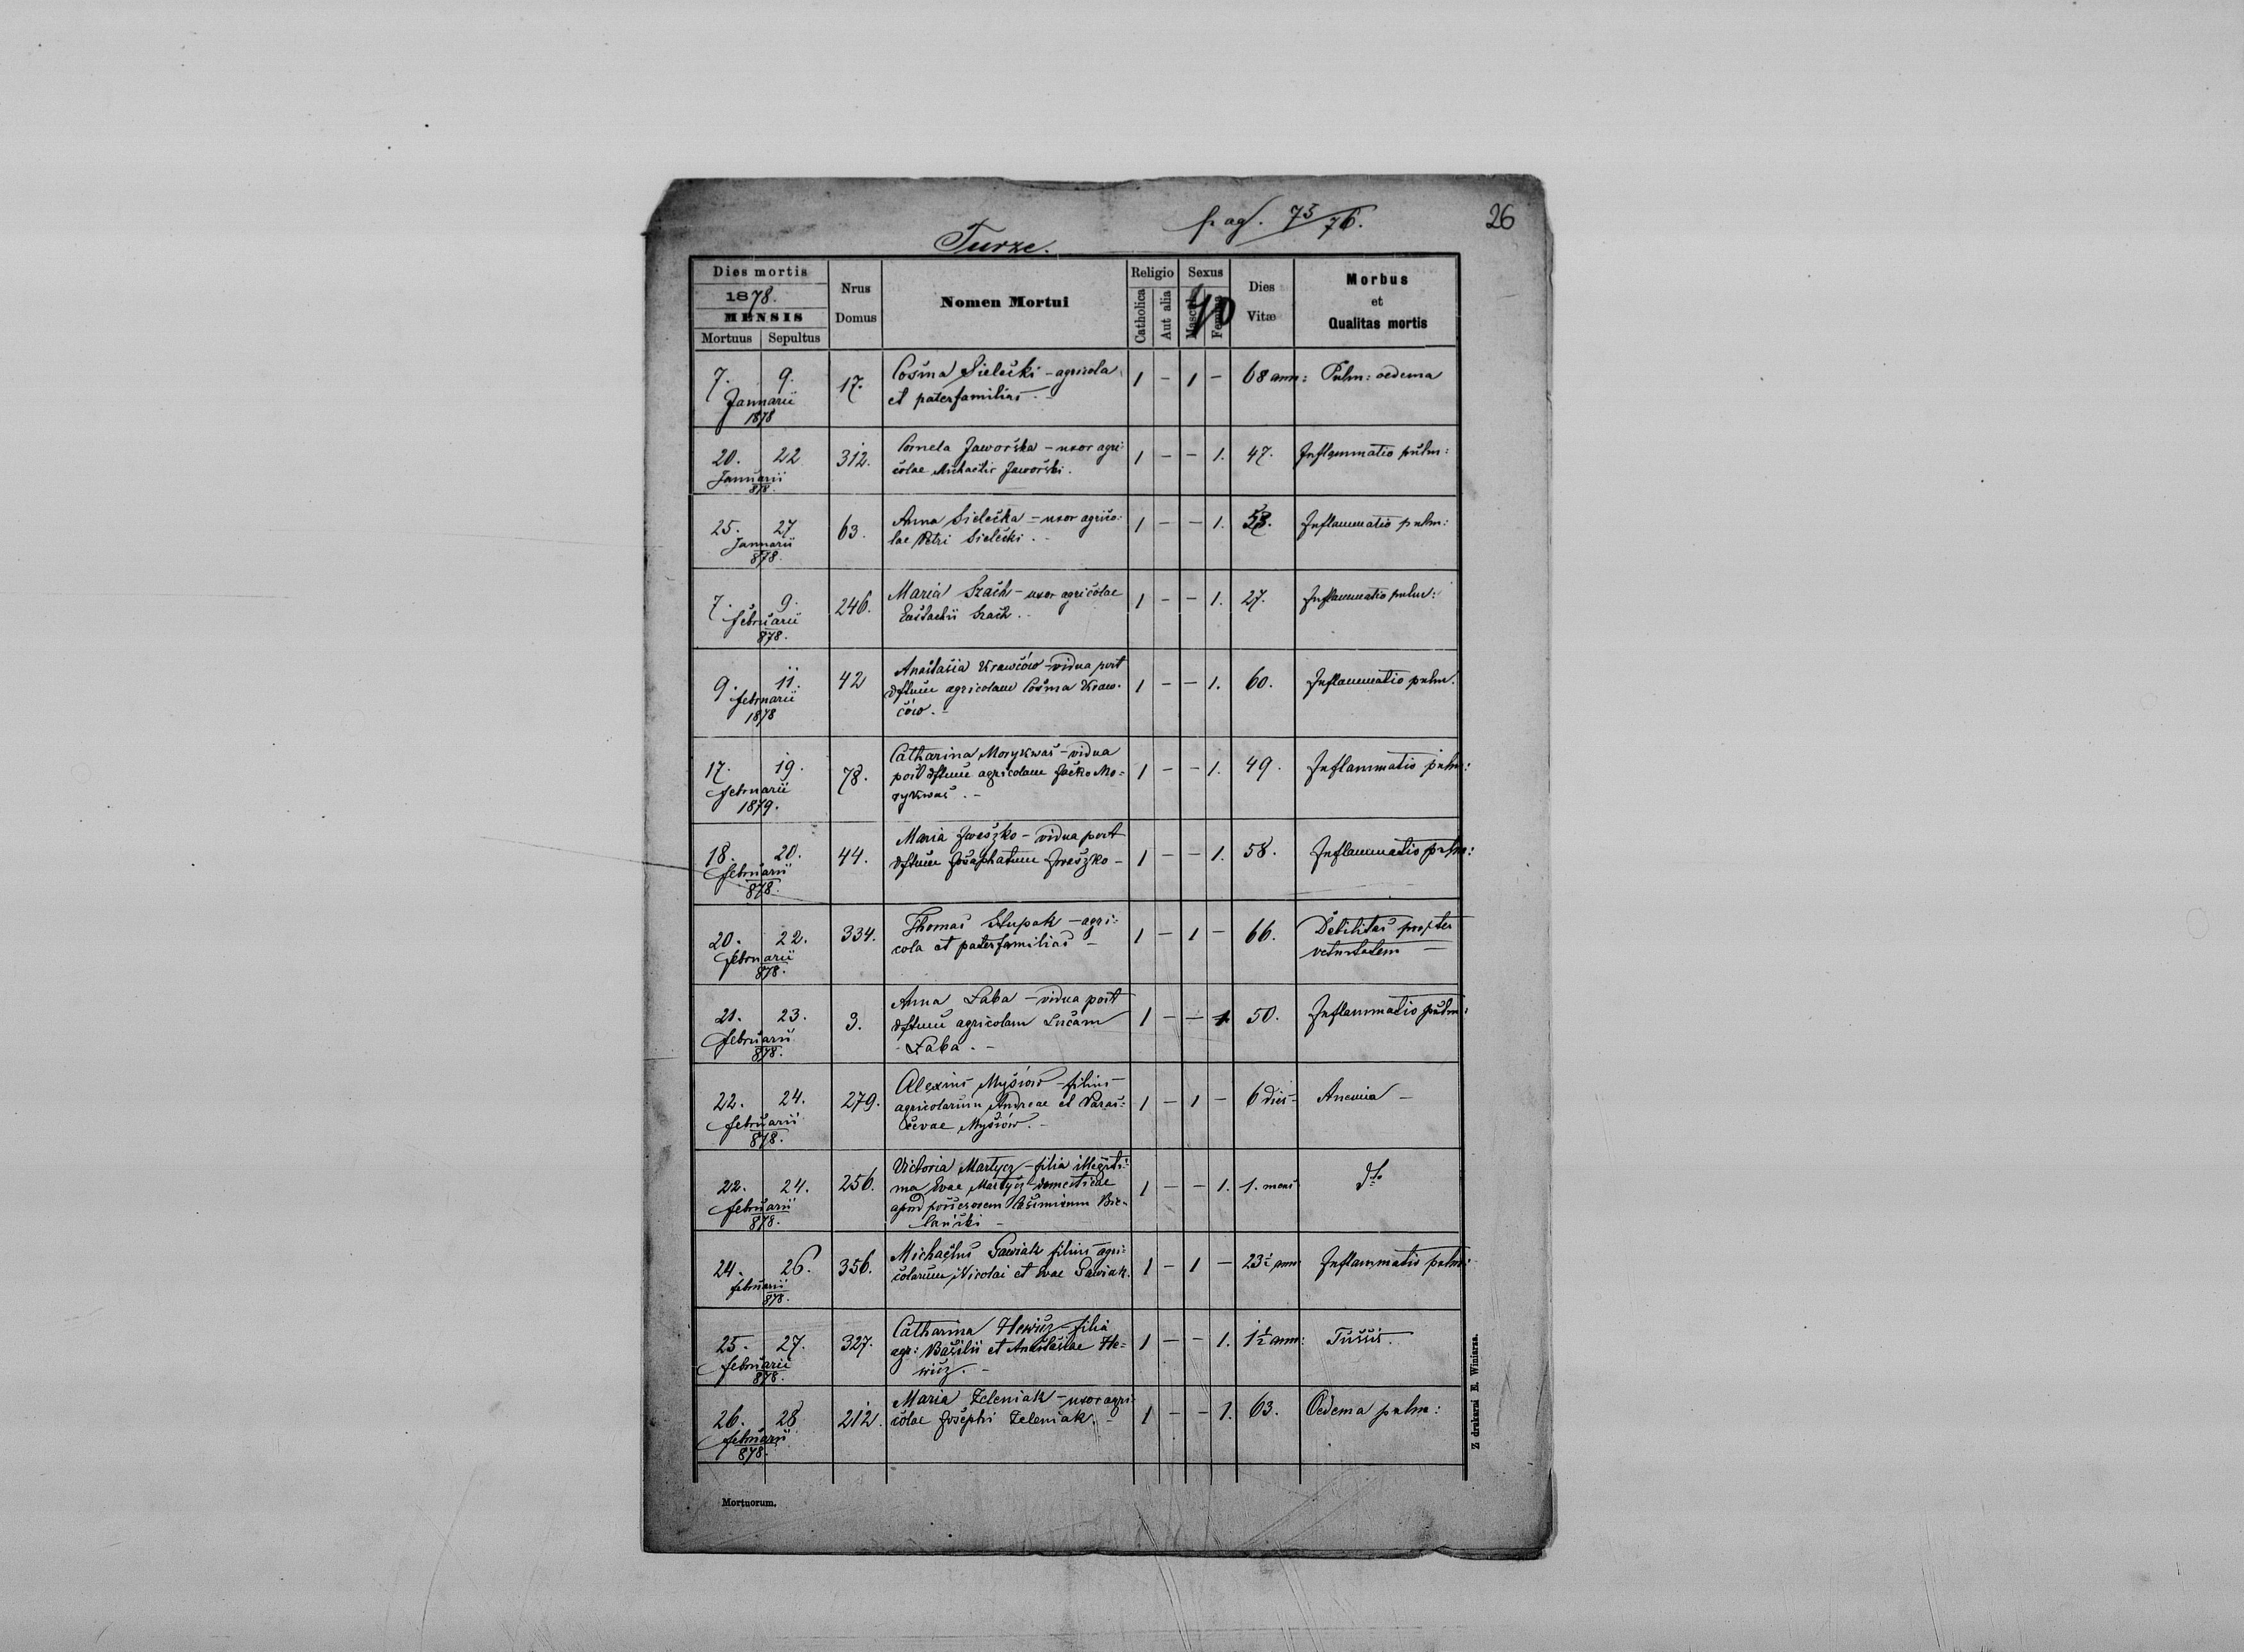 pag. 75/76.
26
Turze.
Dies mortis
1878.
MENSIS
Mortuus Sepultus
Nrus
Domus
Nomen Mortui
Religio
Catholica
Aut alia
Sexus
40
Dies
Vitæ
Morbus
et
Qualitas mortis
7. 9. 17. Cosma Sielecki - agricola 1 - 1 - 68 ann: Pulm: oedema
Januarii et paterfamilias. -
1878
20. 22 312. Jaworska - uxor agri: 1 - - 1. 47. Inflammatio pulm:
Januarii colae Michaelis Jaworski.
878.
25. 27 63. Anna Sielecka - uxor agrico: 1 - - 1. Inflammatio pulm:
Januarii lae Petri Sielecki. -
878.
7. 9. 246. Maria Szach - uxor agricolae 1 - - 1. 27. Inflammatio pulm:
februarii Eustachii Szach. -
878.
9. 11. 42 Anastasia Krawców - vidua post 1 - - 1. 60. Inflammatio pulm.
februarii dftum agricolam Cosma Kraw-
1878 ców. -
17. 19. 78. Catharina Morykwas - vidua 1 - - 1. 49. Inflammatio pulm:
februarii post dftum agricolam Jacko Mo=
1879. rykwas. -
18. 20. 44. Maria Iweszko - vidua post 1 - - 1. 58. Inflammatio pulm:
februarii dftum Josaphatum Iweszko -
878.
20. 22. 334. Thomas Słupak - agri: 1 - 1 - 66. Debilitas propter
februarii cola et paterfamilias - vetustatem -
878.
21. 23. 3. Anna Łaba - vidua post 1 - - 1 50. Inflammatio pulm:
februarii dftum agricolam Lucam
878. Łaba. -
22. 24. 279. Alexius Mysiów - filius 1 - 1 - 6 dies - Anemia -
februarii agricolarum Andreae et Paras=
878. cevae Mysiów. -
22. 24. 256. Victoria Martycz - filia illegiti: 1 - - 1. 1. mens dto
februarii ma Evae Martycz domesticae
878. apud possessorem Casimirum Bie-
lański -
24. 26. 356. Michaelus Gawiak filius agri: 1 - 1 - 23½ ann Inflammatio pulm:
februarii colarum Nicolai et Evae Gawiak.
878.
25. 27. 327. Catharina Hewicz - filia 1 - - 1. 1½ ann: Tussis.
februarii agr: Basilii et Anastasiae He=
878. wicz. -
26. 28 212. Maria Zeleniak - uxor agri: 1 - - 1. 63. Oedema pulm:
februarii colae Josephi Zeleniak. -
878.
Mortuorum.
Z drukarni E. Winiarza.